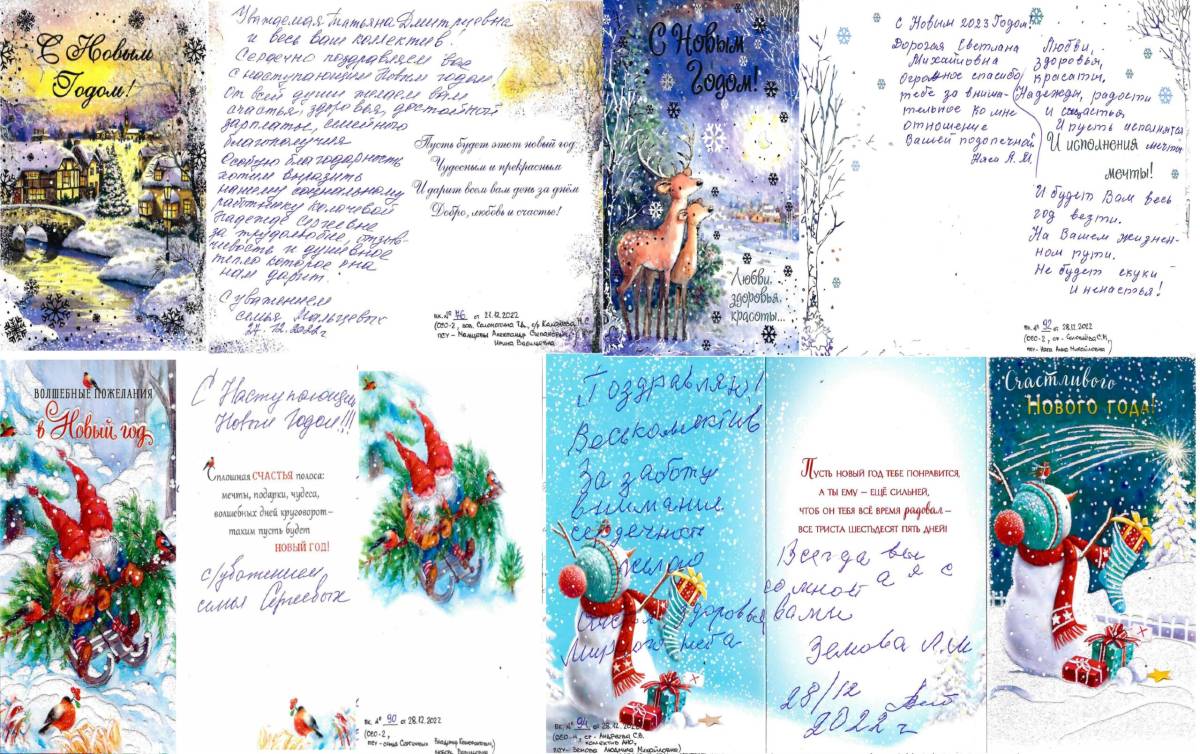 С Новым
Годом!
Уважаемая Татьяна Дмитриевна
и весь ваш коллектив!
Сердечно поздравляем вас
с наступающим Новым годом
От всей души желаем вам
счастья, здоровья, достойной
зарплаты, семейного
благополучия
Особую благодарность
хотим выразить
нашему социальному
работнику
Надежде Сергеевне
за трудолюбие, отзыв-
чивость и душевное
тепло которое она
нам дарит.
С уважением
семья Мальцевых
27.12.2022г
Пусть будет этот новый год
Чудесным и прекрасным
И дарит всем вам день за днём
Добро, любовь и счастье!
вх. № 76 от 27.12.2022
С Новым
Годом!
Любви,
здоровья,
красоты...
С Новым 2023 Годом!
Дорогая Светлана
Михайловна
Огромное спасибо
тебе за внима-
тельное ко мне
отношение
Вашей подопечной
Нага А.М.
Любви,
здоровья,
красоты.
Надежды, радости
и счастья
И пусть исполнятся
мечты
И исполнения
мечты!
И будет Вам весь
год везти.
На Вашем жизнен-
ном пути.
Не будет скуки
и ненастья!
вх. № 92 от 28.12.2022
ВОЛШЕБНЫЕ ПОЖЕЛАНИЯ
в Новый год
С Наступающим
Новым Годом!!!
Сплошная СЧАСТЬЯ полоса:
мечты, подарки, чудеса,
волшебных дней круговорот–
таким пусть будет
НОВЫЙ ГОД!
с/уважением
семья Сергеевых
вх. № 90 от 28.12.2022
(ОСО-2,
Поздравляю!
Весь коллектив
За заботу
внимание
сердечной
желаю
здоровья
Мирного неба
вх. № 94 от 28.12.2022
Пусть новый год тебе понравится,
а ты ему – ещё сильней,
чтоб он тебя всё время радовал –
все триста шестьдесят пять дней!
Всегда вы
со мной а я с
вами
Земова Л.М
28/12
2022г
Счастливого
Нового года!